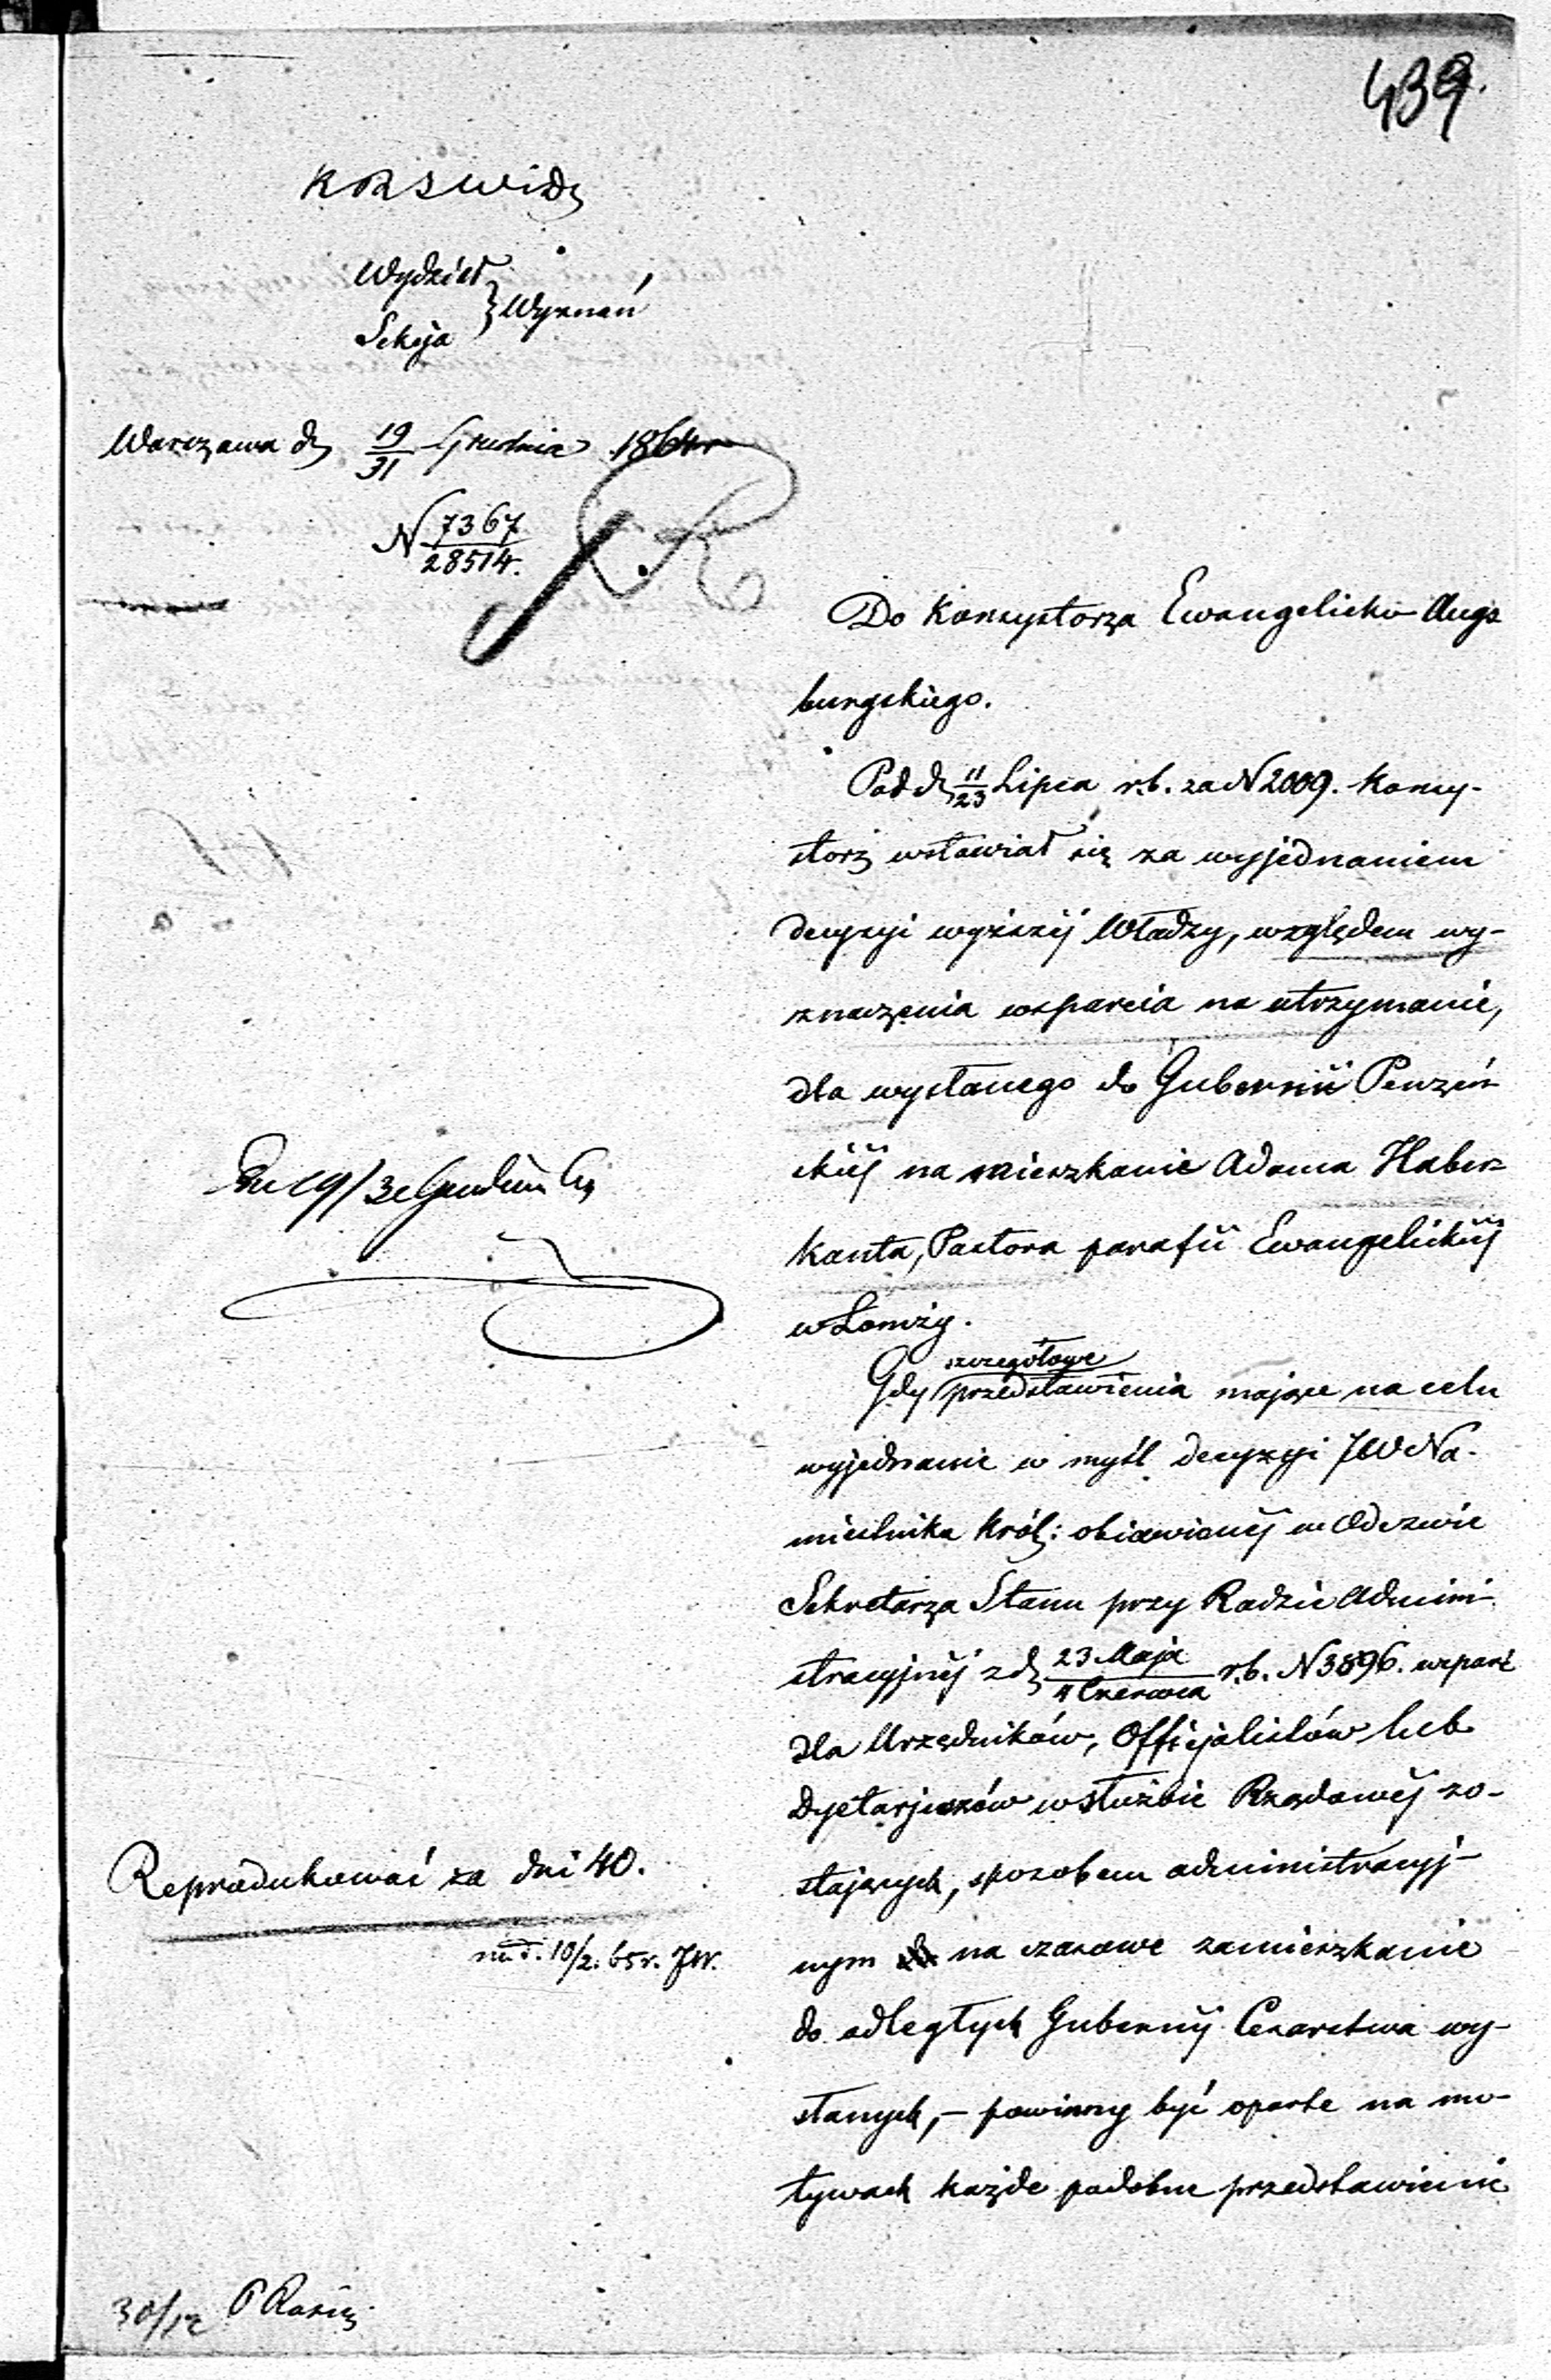 439.
KRSWiD
Wydział
Sekcja } Wyznań
Warszawa d 19/31 Grudnia 1864 r
N 7367/28514.
Do Konsystorza Ewangelicko Augs
burgskiego.
Pod d 11/23 Lipca r.b. za N 2009. Konsy-
storz wstawiał się za wyjednaniem
decyzyi wyższéj Władzy, względem wy-
znaczenia wsparcia na utrzymanie,
dla wysłanego do Gubernii Penzeń-
skiéj na mieszkanie Adama Haber-
kanta, Pastora parafii Ewangelickiéj
w Łomży.
szczegółowe
Gdy przedstawienia mające na celu
wyjednanie w myśl decyzyi JW Na-
miestnika Król: obiawionéj w Odezwie
Sekretarza Stanu przy Radzie Admini-
stracyjnéj z d 23 Maja/4 Czerwca r.b. N 3896. wsparć
dla Urzędników, Officjalistów lub
Dyetarjuszów w służbie Rządowéj zo-
stających, sposobem administracyj-
nym na czasowe zamieszkanie
do odległych Gubernij Cesarstwa wy-
słanych, – powinny być oparte na mo-
tywach każde podobne przedstawienie
Reprodukować za dni 40.
10/2. 65 r. JW.
30/12